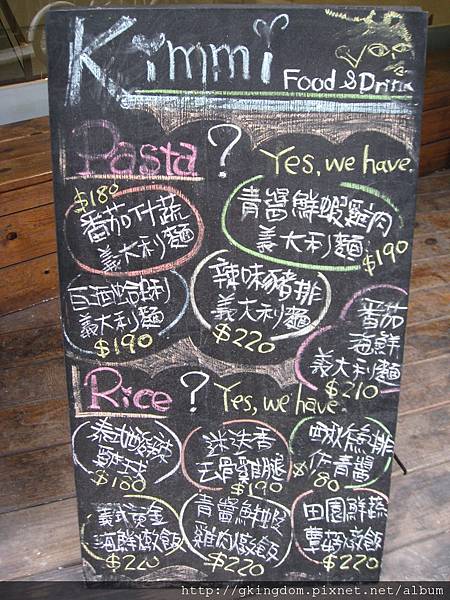 Kimmi
Food & Drink
Pasta ? Yes, we have.
$180
番茄什蔬
義大利麵
青醬鮮蝦雞肉
義大利麵
$190
白酒蛤蜊
義大利麵
$190
辣味豬排
義大利麵
$220
番茄
海鮮
義大利麵
$210
Rice ? Yes, we have.
泰式酸辣
$180
迷迭香
去骨雞腿
$190
佐青醬
義式黃金
海鮮燉飯
$220
青醬鮮蝦
雞肉燉飯
$220
田園鮮蔬
蕈菇燉飯
$220
http://gkingdom.pixnet.net/album